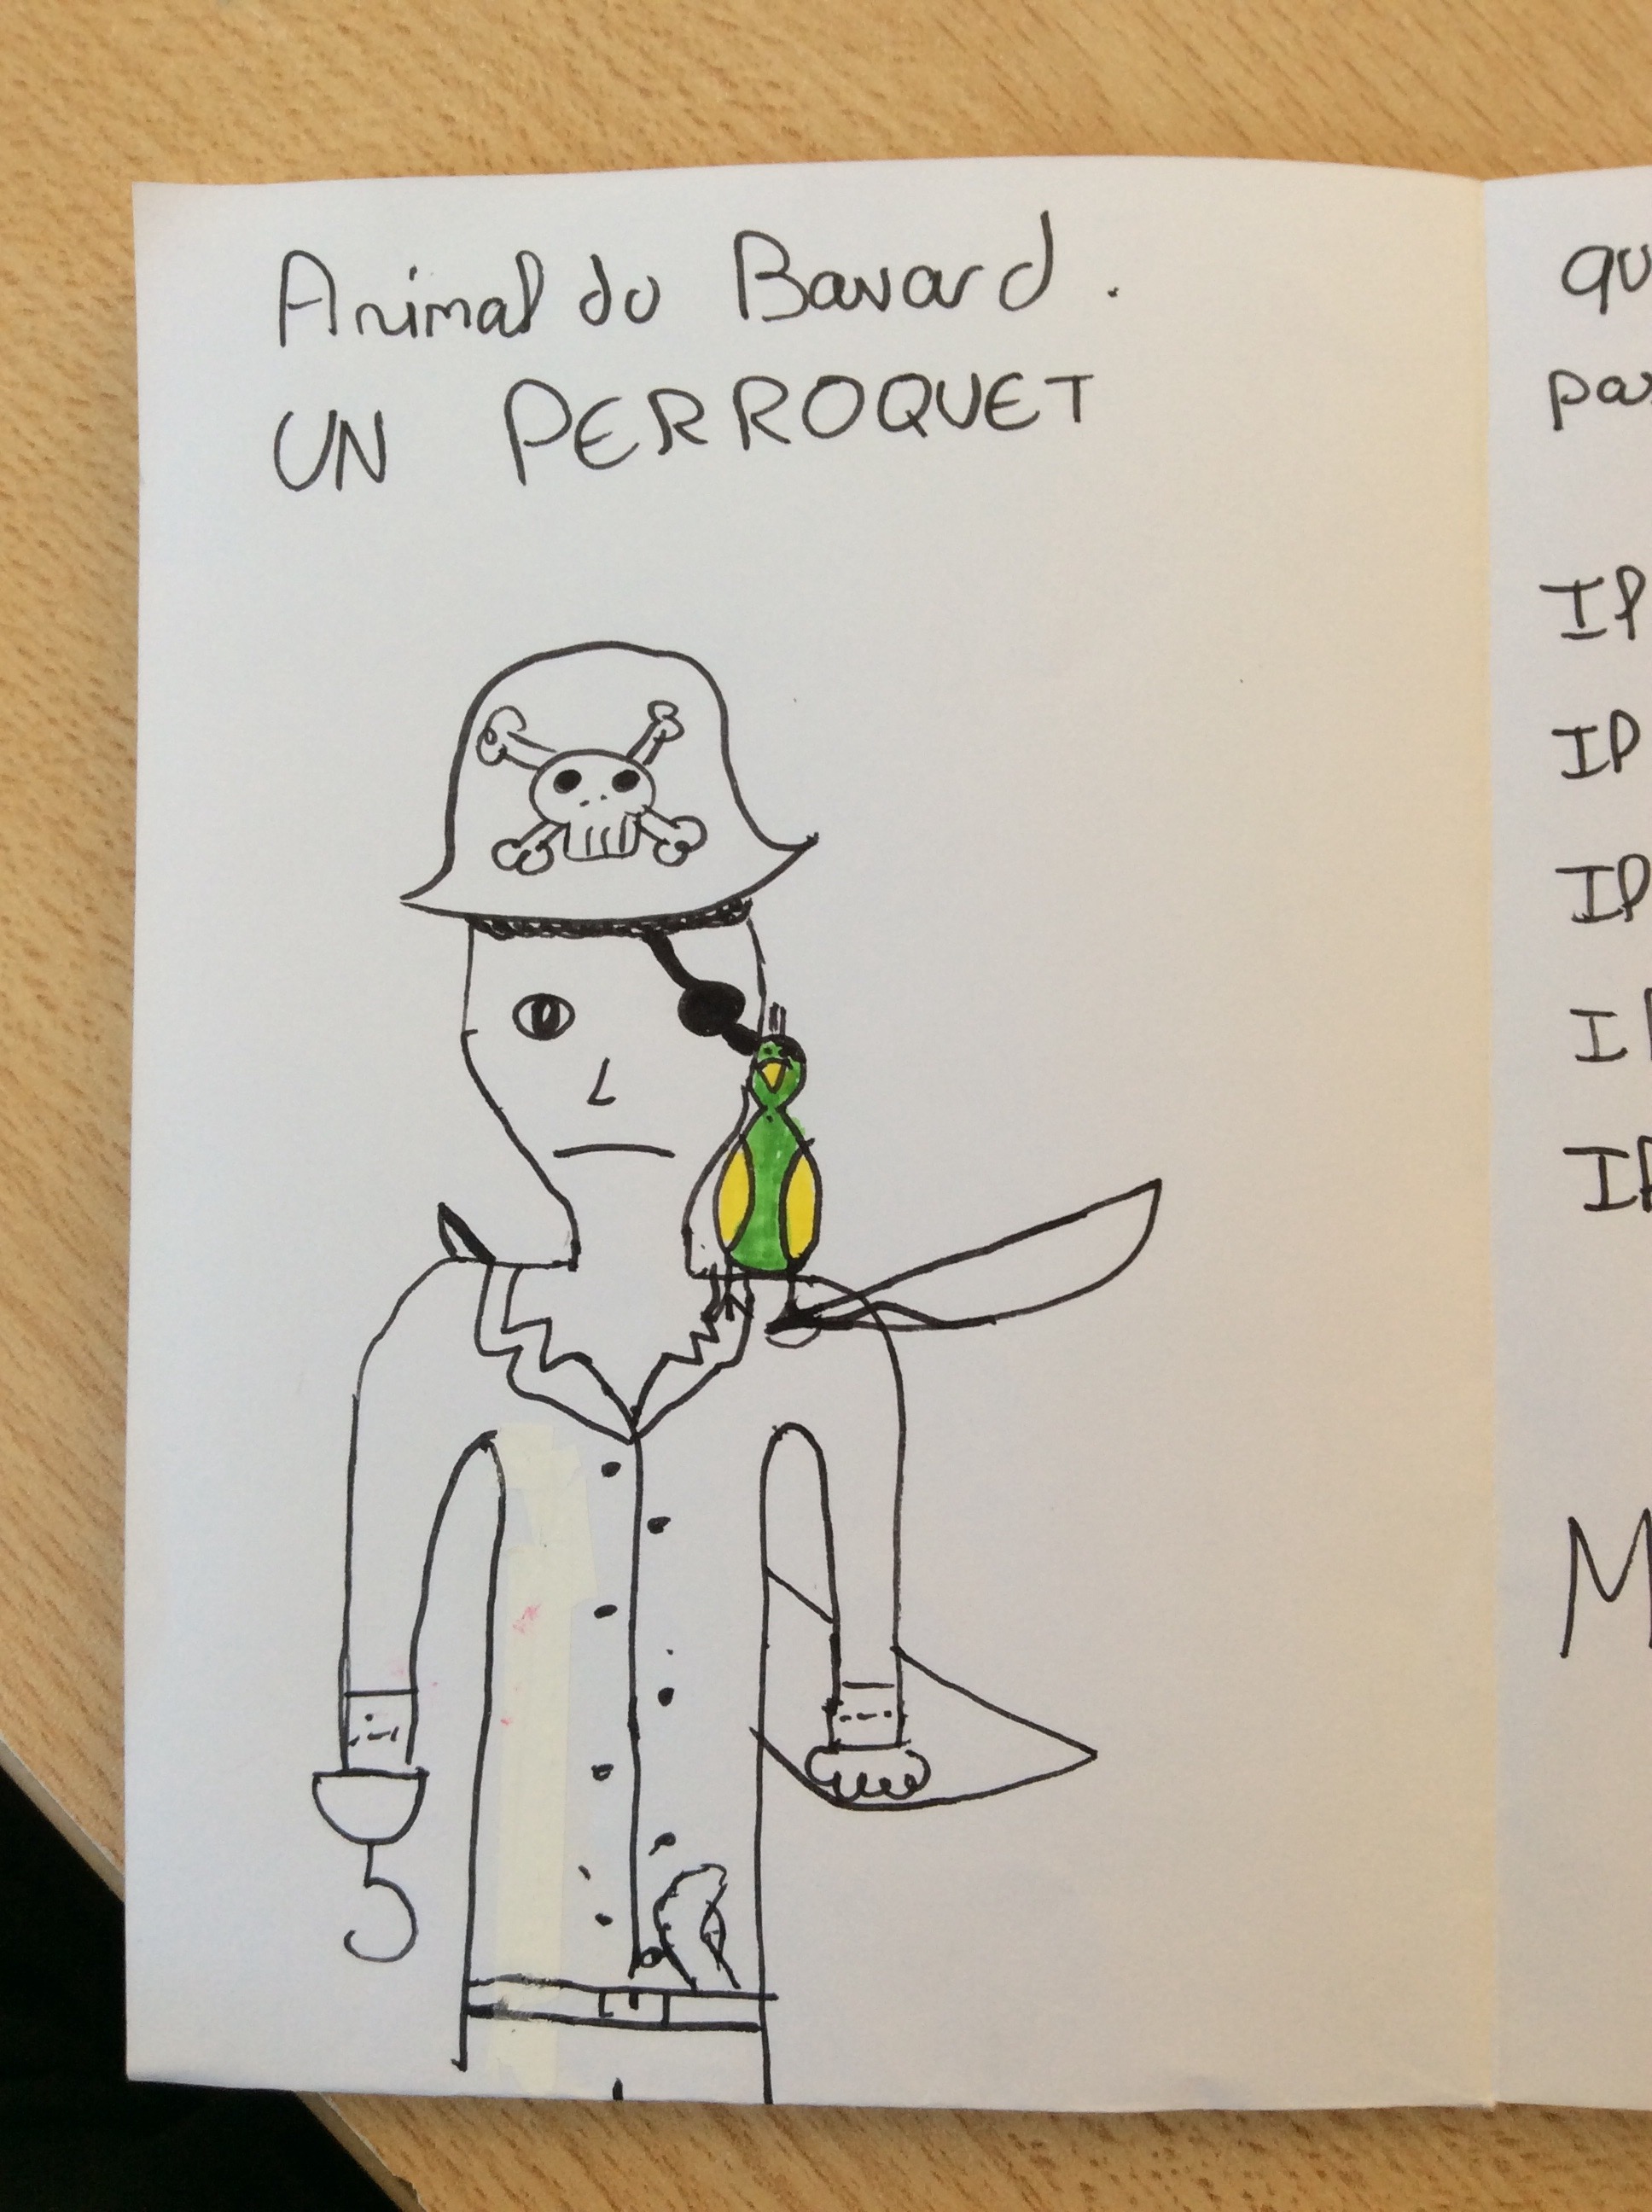 Animal du Bavard.
UN PERROQUET
qu
pa
Il
Il
Il
Il
Il
M